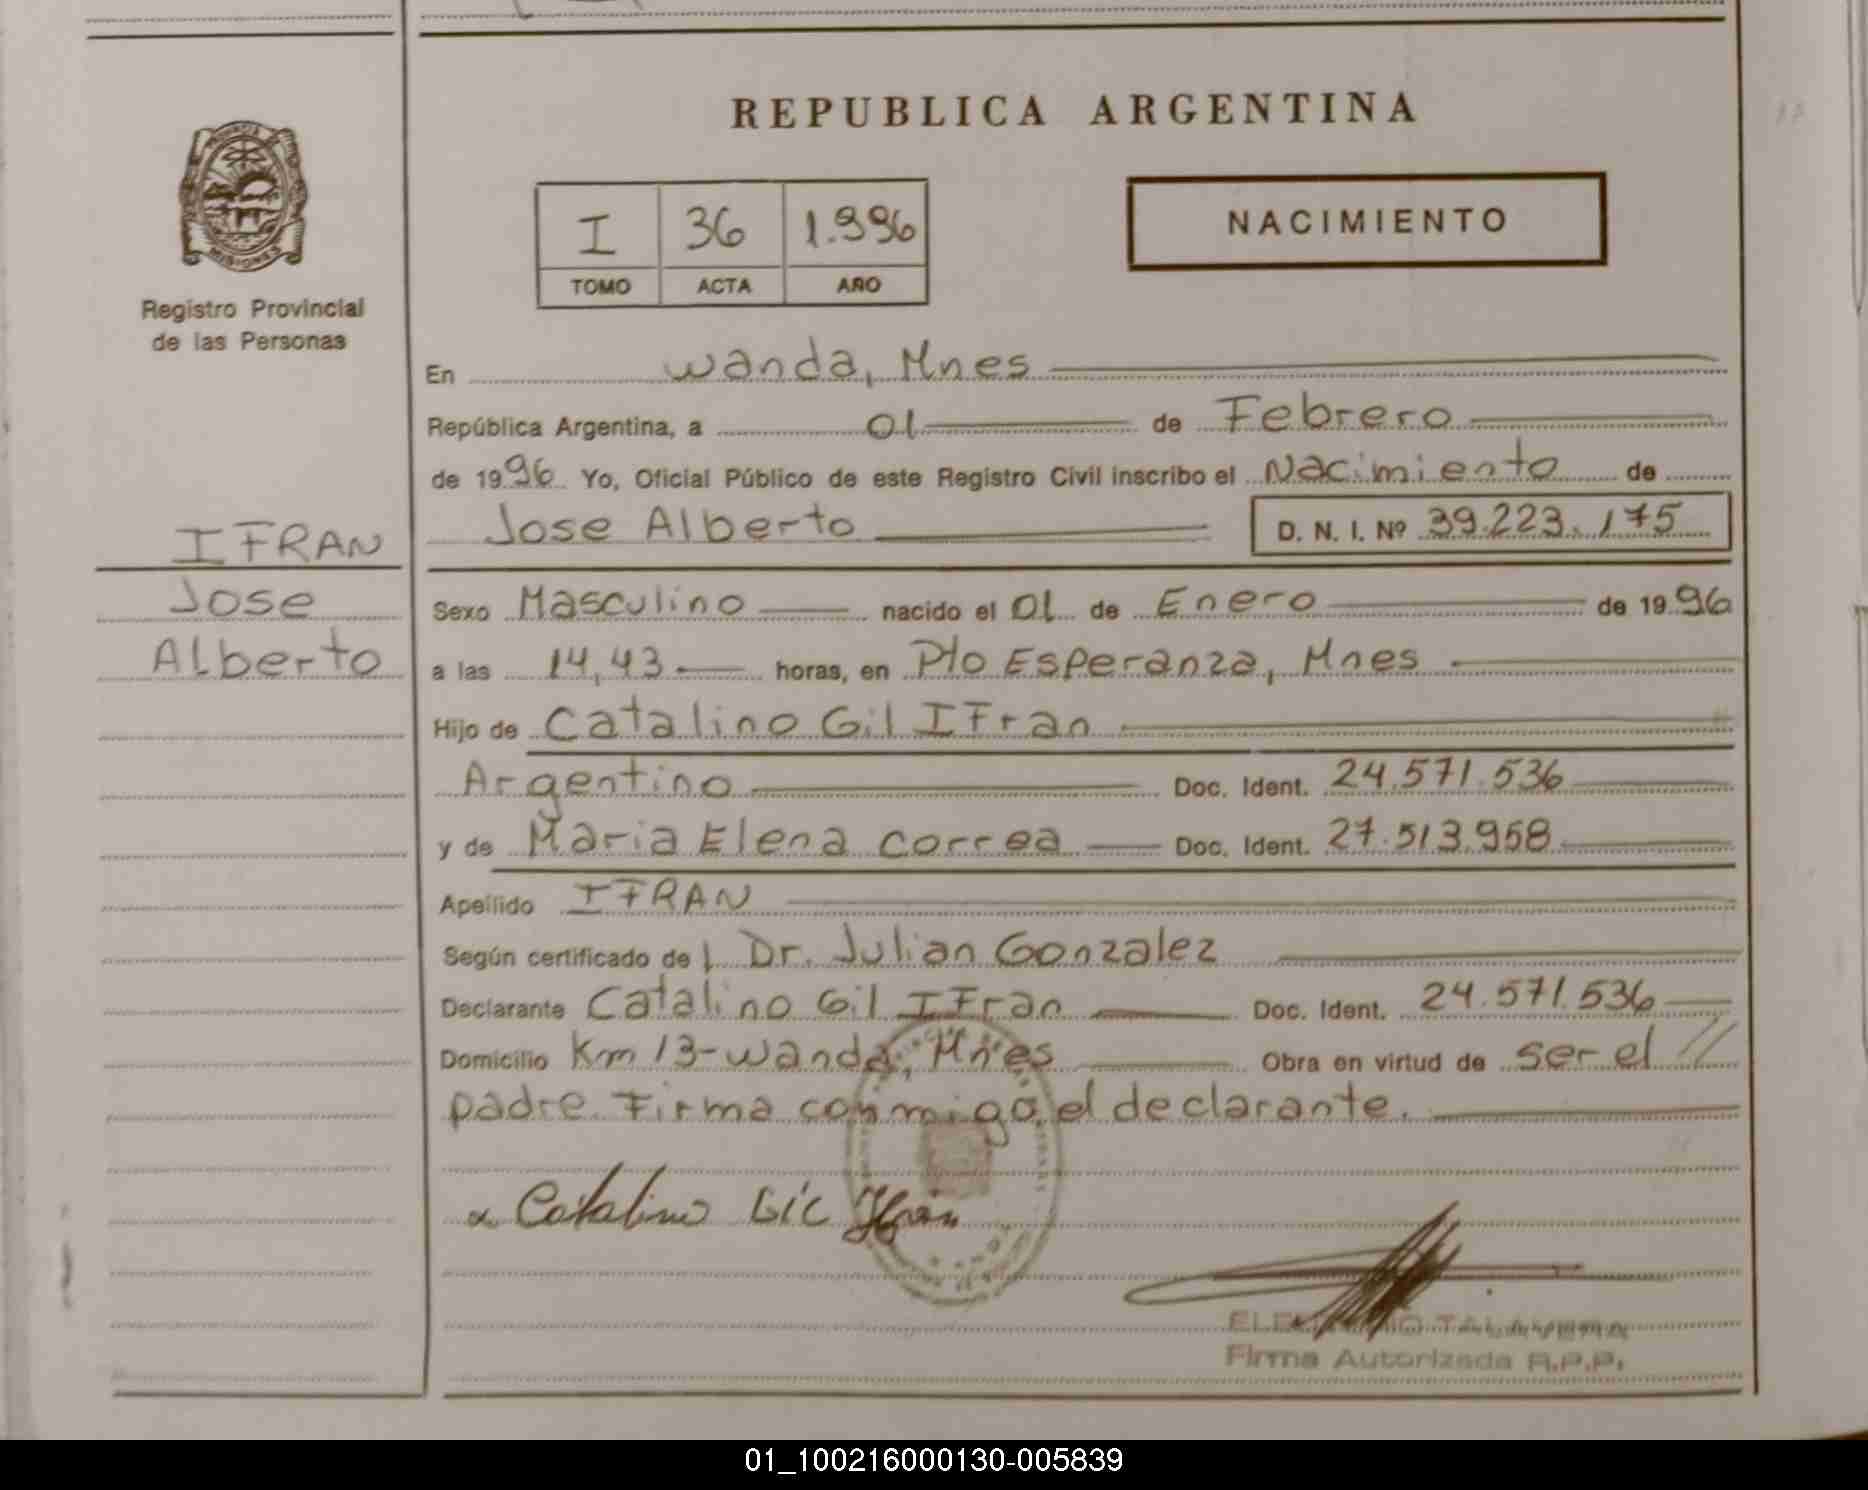 REPUBLICA ARGENTINA
MISIONES
Registro Provincial
de las Personas
I 36 1.996
TOMO ACTA AÑO
NACIMIENTO
En Wanda, Mnes
República Argentina, a 01 de Febrero
de 1996 Yo, Oficial Público de este Registro Civil inscribo el Nacimiento de
Jose Alberto D. N. I. Nº 39.223.175
IFRAN
Jose
Alberto
Sexo Masculino nacido el 01 de Enero de 1996
a las 14,43 horas, en Pto Esperanza, Mnes
Hijo de Catalino Gil IFran
Argentino Doc. Ident. 24.571.536
y de Maria Elena Correa Doc. Ident. 27.513.958
Apellido IFRAN
Según certificado del Dr. Julian Gonzalez
Declarante Catalino Gil IFran Doc. Ident. 24.571.536
Domicilio Km 13-Wanda, Mnes Obra en virtud de ser el //
padre. Firma conmigo el declarante.
Catalino Gil Ifran
TALAVERA
Firma Autorizada R.P.P.
01_100216000130-005839